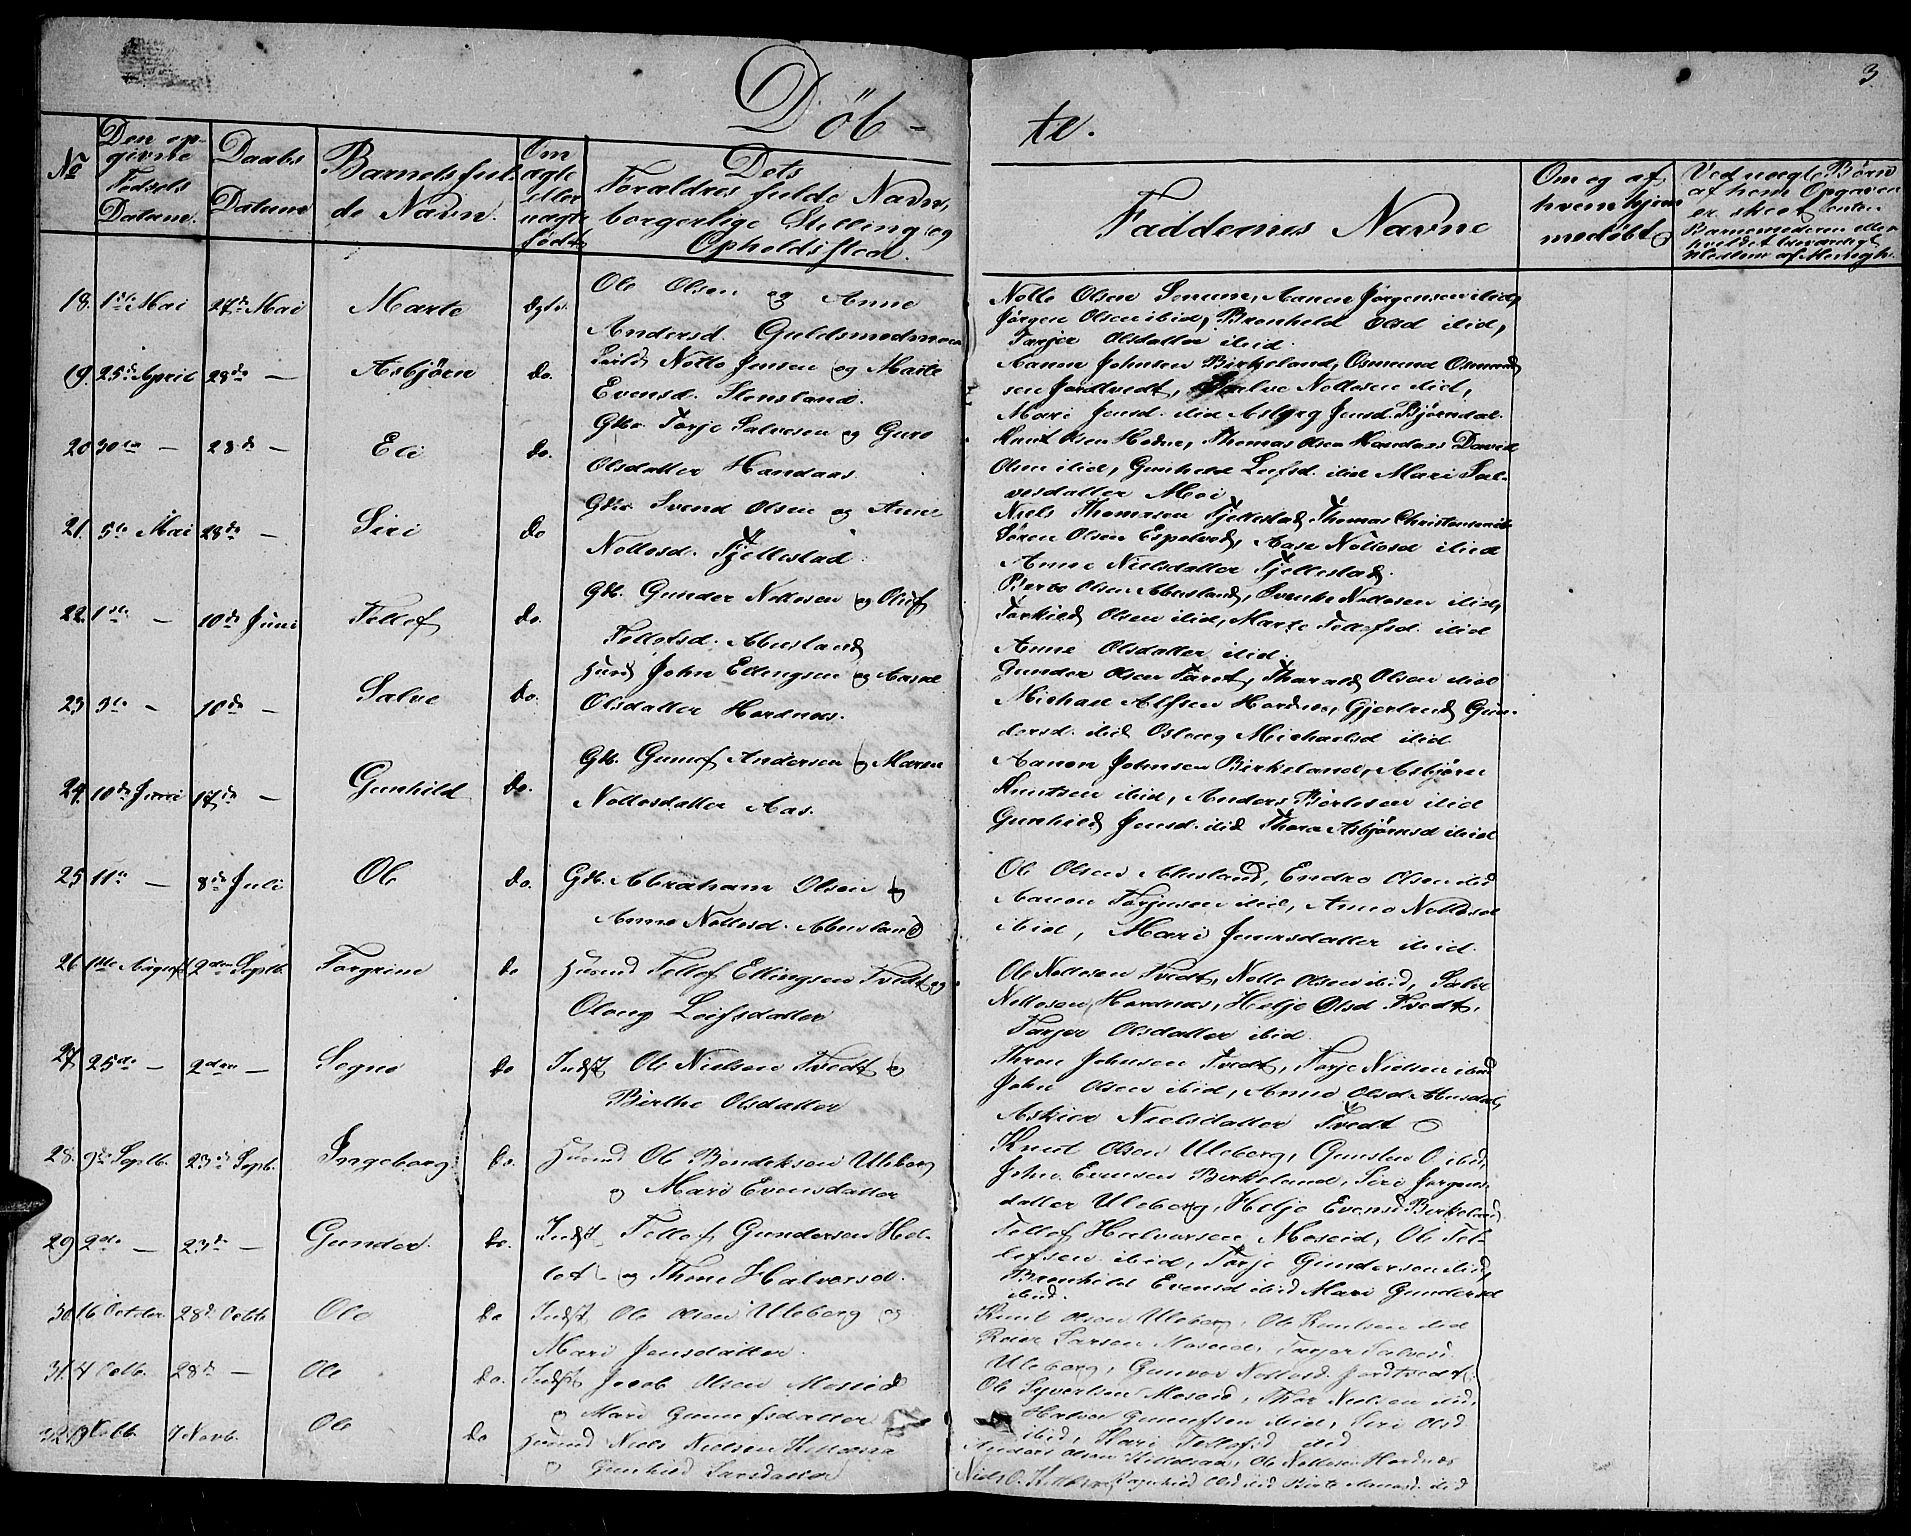 3.
Döb-te.
No
Den opgivne Fødsels Datum.
Daabs Datum
Barnets fulde Navn.
Om ægte eller uægte født
Dets Forældres fulde Navn, borgerlige Stilling og Opholdssted.
Faddernes Navne
Om og af hvem hjemmedøbt
Ved uægte Børn af hvem Opgaven er skeet
18. 1ste Mai 27de Mai Marte Ægte. Ole Olsen og Anne
Andersd. Guldsmedmoen
Notto Olsen Senum, Aanon Jørgensen ibid,
Jørgen Olsen ibid, Brønhild Olsd ibid,
Tarjer Olsdatter ibid.
19. 25de April 28de — Asbjørn do. Notto Jensen og Marte
Evensd. Stensland.
Aanon Johnsen Birkeland, Osmund Osmund
sen Jordtvedt, Nottosen ibid,
Mari Jensd. ibid Asbjøg Jensd. Bjørndal.
20 30te — 28de — Eli do. Gbr. Torje Salvesen og Guro
Olsdatter Handaas.
Knut Olsen Hodne, Thomas Olsen Handaas David
Olsen ibid, Gunhild Leifsd. ibid Mari Sal-
vesdatter Moi
21. 5te Mai 28de — Siri do Gbr. Svend Olsen og Anne
Nottosd. Fjellestad.
Niels Thomasen Fjellestad, Thomas Christensen ib
Søren Olsen Espetved, Aase Nottosd ibid
Anne Nielsdatter Fjellestad.
22. 1ste — 10de Juni Tellef do. Gbr. Gunder Nottosen og Oluf
Tellefsd. Abusland
Olsen Abusland, Nottosen ibid,
Torkild Olsen ibid, Marte Tellefsd. ibid
Anne Olsdatter ibid.
23 3te — 10de — Salve do. Husmd John Ellingsen og Aasne
Olsdatter Hordnes.
Gunder Olsen Taret, Tharald Olsen ibid
Michael Alfsen Hordnes, Gjerland Gun-
dersd. ibid Osborg Michaelsd ibid
24. 10de Juni 17de — Gunhild do. Gbr. Gunuf Andersen og Maren
Nottosdatter Aas.
Aanon Johnsen Birkeland, Asbjørn
Knutsen ibid, Anders Børlesen ibid
Gunhild Jensd. ibid Thora Asbjørnsd ibid
25 11te — 8de Juli Ole do. Gbr. Abraham Olsen og
Anne Nottosd. Abusland
Ole Olsen Abusland, Endre Olsen ibid
Aanon Torjusen ibid, Anne Nottosd
ibid, Mari Jensdatter ibid.
26 1ste August 2den Septb. Torgrine do Husmd Tellef Ellingsen Tvedt og
Olong Leifsdatter
Ole Nottosen Tvedt, Notto Olsen ibid, Salve
Nottosen Hordnes, Helje Olsd Tvedt,
Tarjer Olsdatter ibid.
27 25de — 2den — Segne do Indst Ole Nielsen Tvedt og
Birthe Olsdatter
Thron Johnsen Tvedt, Torje Nielsen ibid
John Olsen ibid, Anne Olsd Abusdal,
Askier Nielsdatter Tvedt
28. 9de Septb. 23de Septb. Ingeborg do. Husmd Ole Bendiksen Uleberg
og Mari Evensdatter
Knut Olsen Uleberg, Gunsten O ibid,
John Evensen Birkeland, Siri Jørgens-
datter Uleberg, Helje Evensd Birkeland
29 2de — 23de — Gunder. do. Indst Tellef Gundersen Hel-
let og Thone Halvorsd.
Tellef Halvorsen Moseid, Ole Tel-
lefsen ibid, Torje Gundersen ibid,
Brønhild Evensd ibid Mari Gundersd
ibid.
30. 16 October 28de Octb Ole do Indst Ole Olsen Uleberg og
Mari Jensdatter.
Knut Olsen Uleberg, Ole Knutsen ibid
Reier Larsen Moseid, Tarjer Salvesd.
Uleberg, Gunvor Nottosd. Jordtvedt.
31. 4 Octb. 28de — Ole do. Indst Jacob Olsen Moseid
og Mari Gunufsdatter
Ole Syvertsen Moseid, Thor Nielsen ibid,
Halvor Gunufsen ibid, Siri Olsd
ibid, Kari Tellefsd ibid
32 Octb. 4 Novb. Ole do Husmd Niels Nielsen
og Gunhild Larsdatter
Anders Olsen, Ole Nottosen Hordnes
Niels O. Olsd ibid Birte ibid